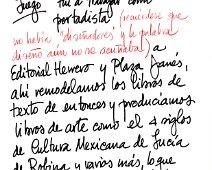 luego fui a trabajar como
portadista (recuérdese que
no había "diseñadores" y la palabra
diseño aún no se acuñaba) a
Editorial Herrero y Plaza Janés,
ahí remodelamos los libros de
texto de entonces y producíamos
libros de arte como el 4 siglos
de Cultura Mexicana de Lucía
de Robina y varios más, lo que